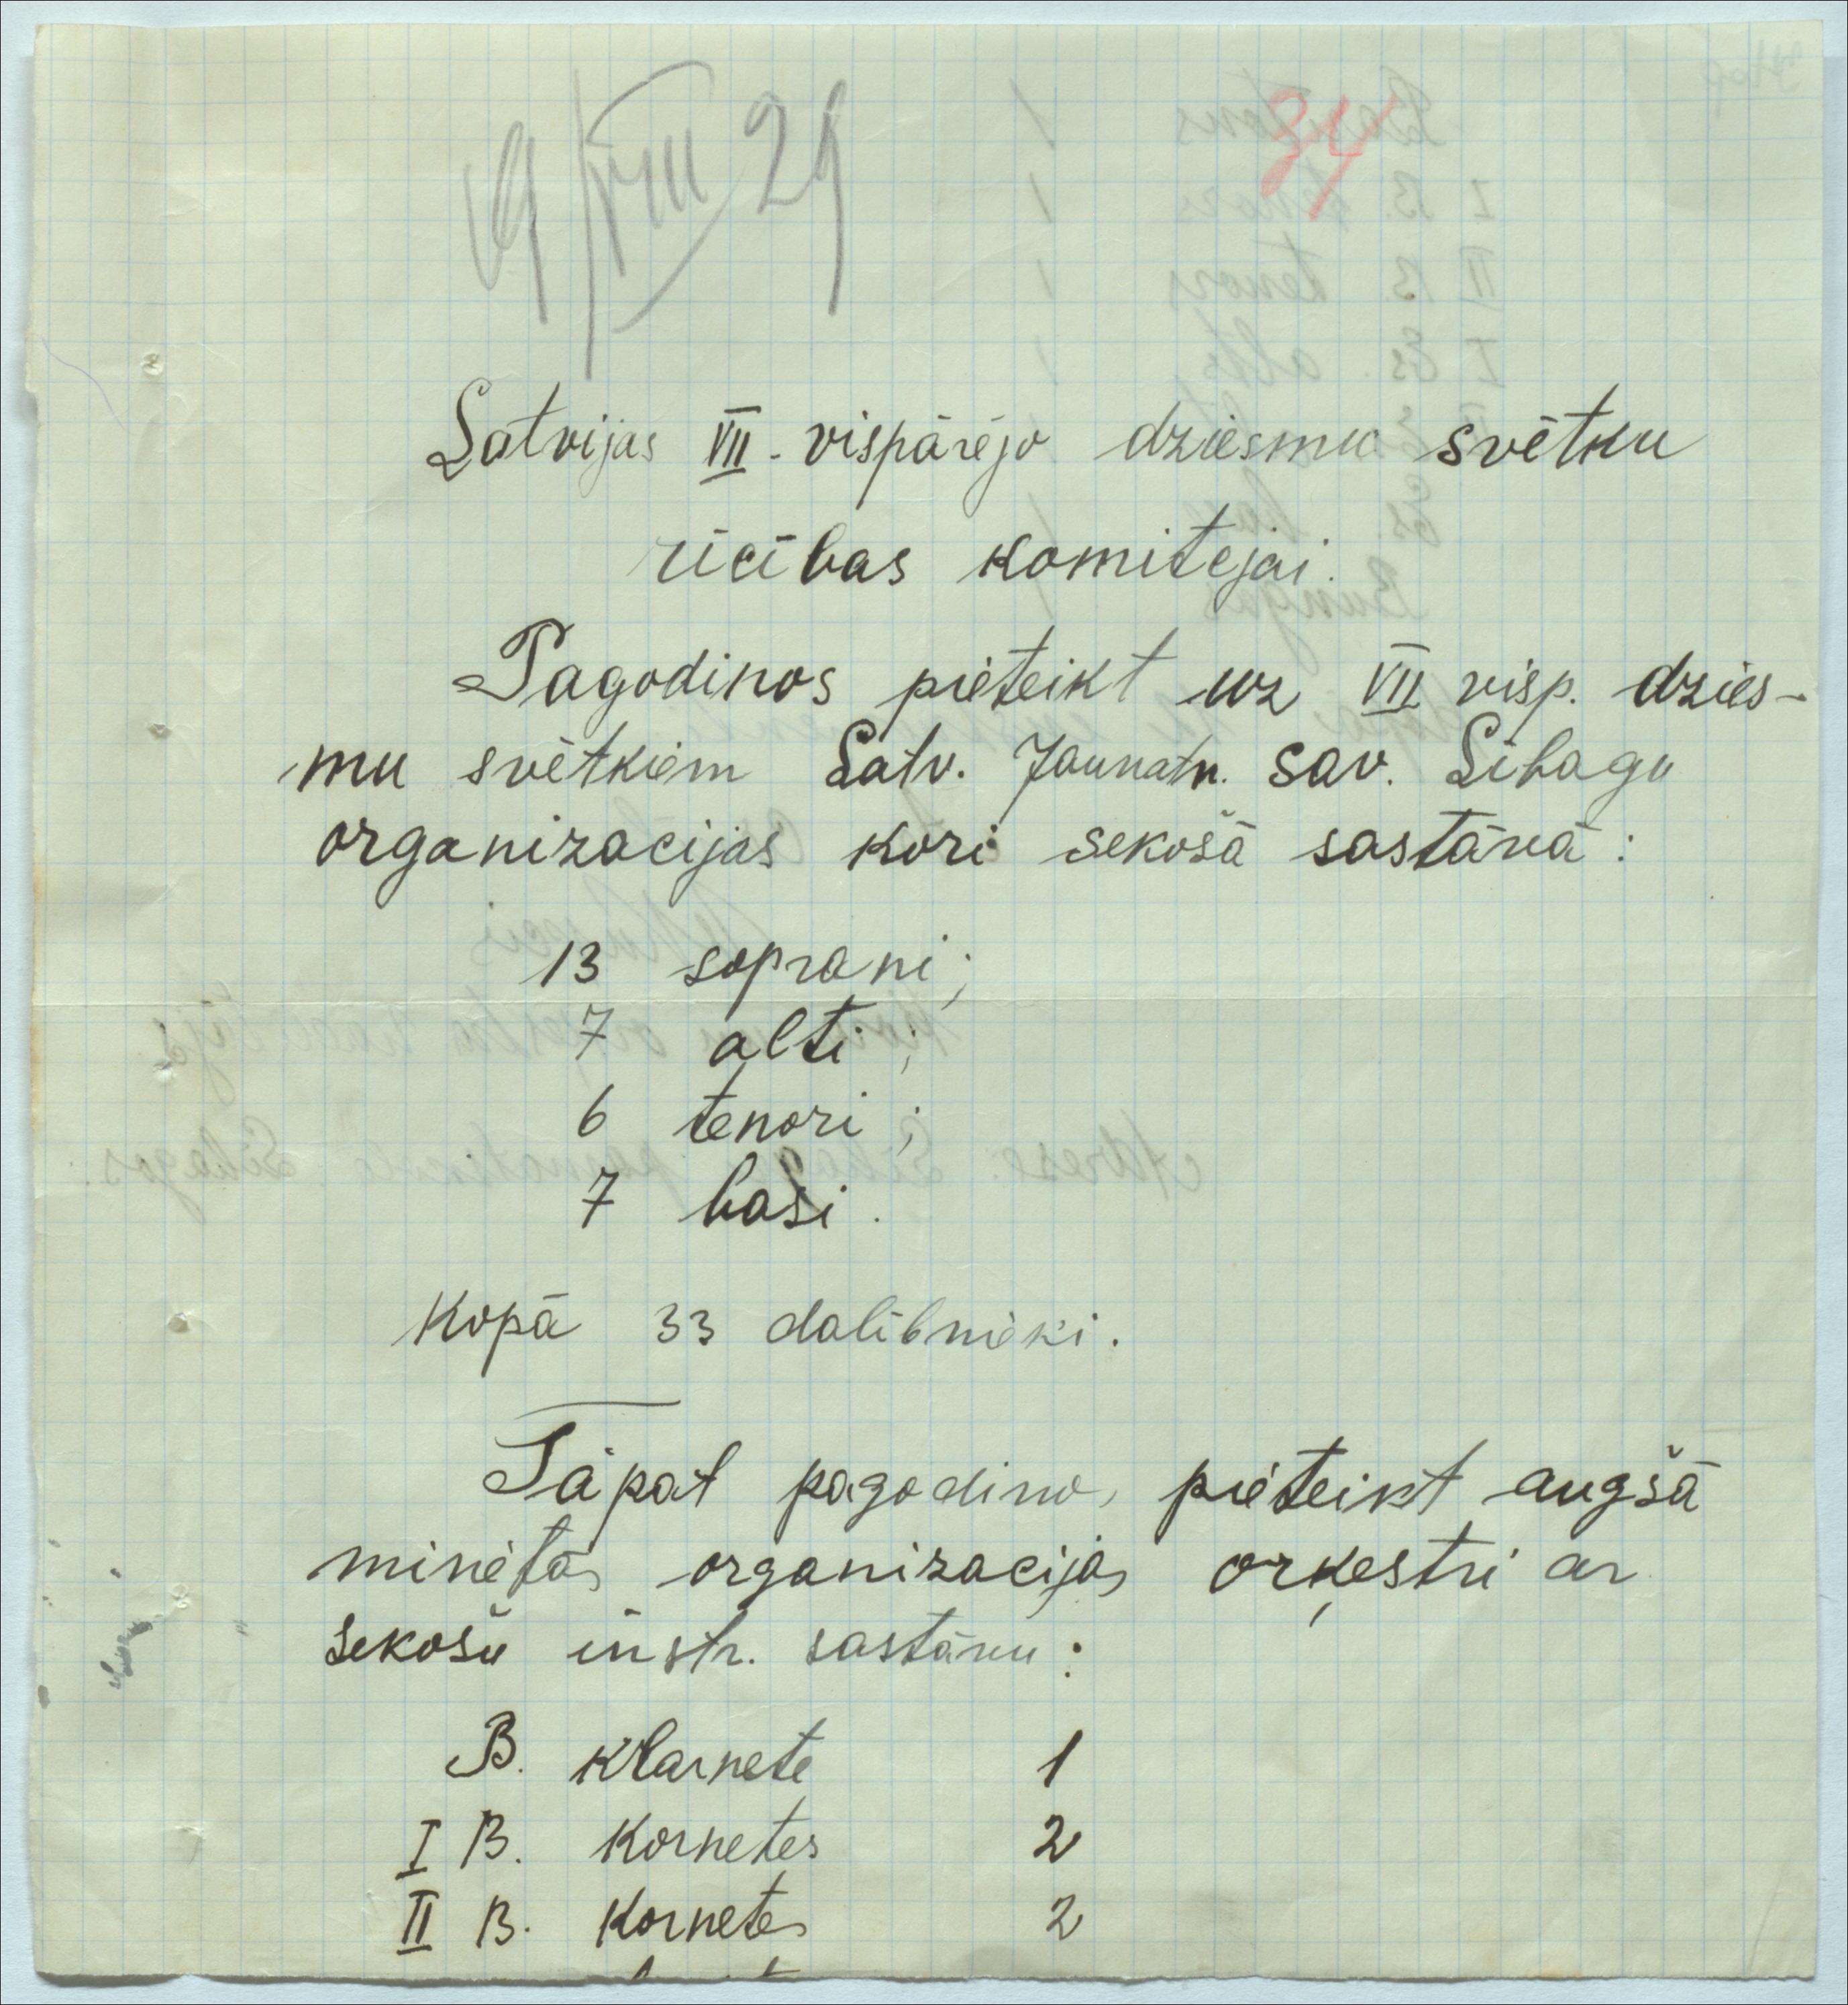 19/VIII 29
34
Latvijas VII. vispārējo dziesmu svētku
rīcības komitejai.
Pagodinos pieteikt uz VII visp. dzies-
mu svētkiem Latv. Jaunatn. sav. Lībagu
organizacijas kori sekošā sastāvā:
13 soprani;
7 alti;
6 tenori;
7 basi.
Kopā 33 dalībnieki.
Tāpat pagodinos pieteikt augšā
minētās organizacijas orķestri ar
sekošu instr. sastāvu:
B. klarnete 1
I B. Kornetes 2
II B. Kornetes 2